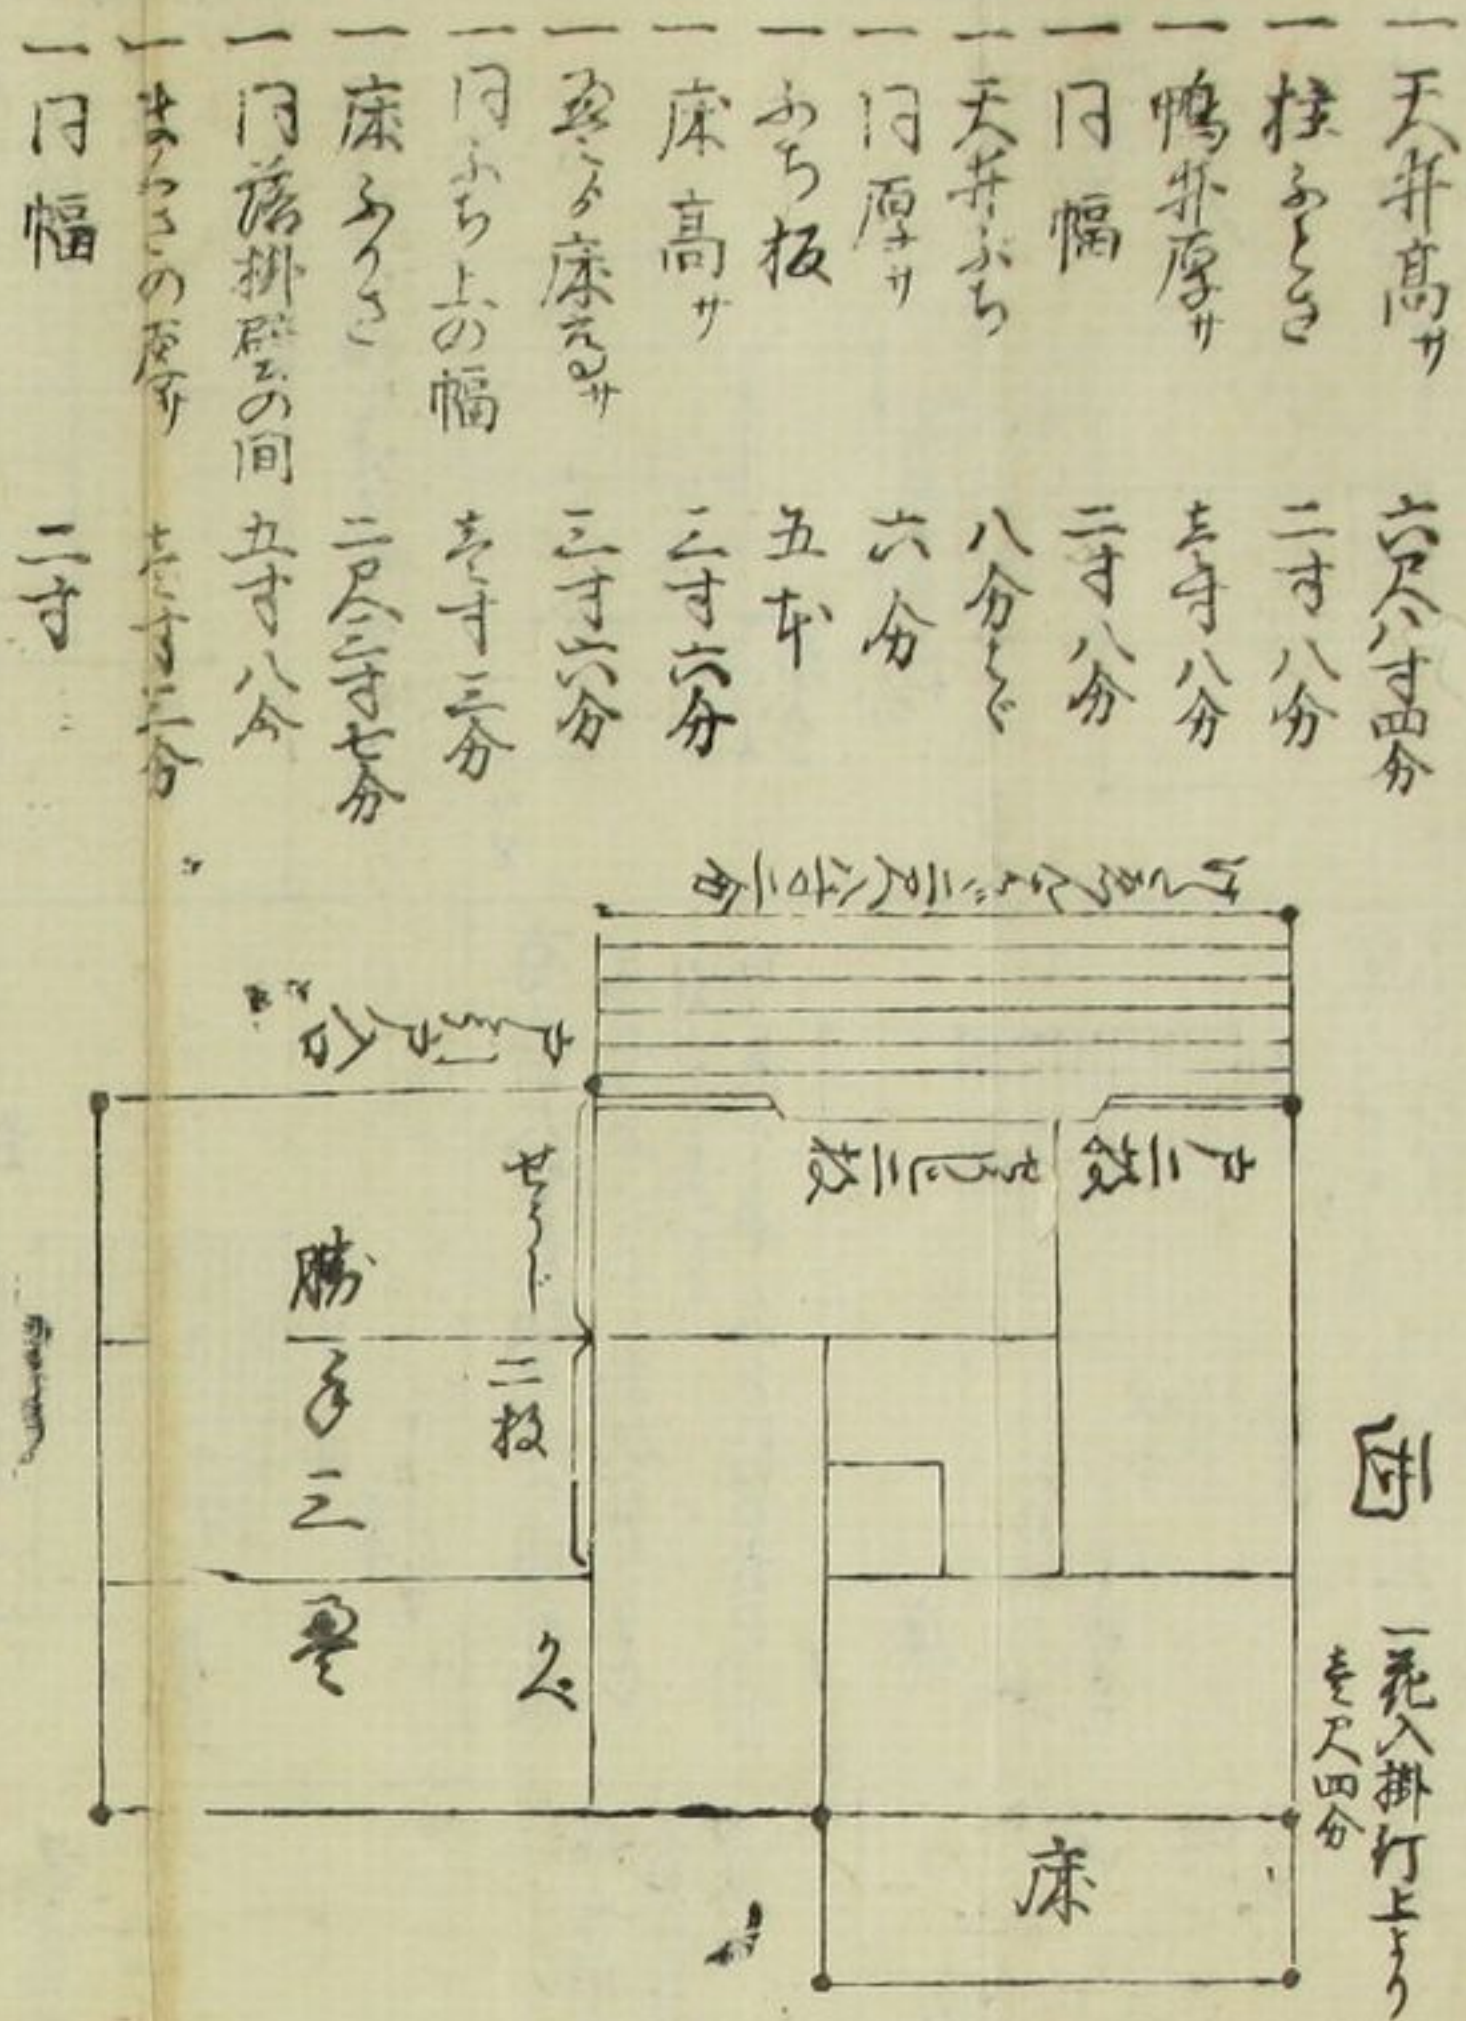 一 天井高サ 六尺八寸四分
一 柱ふとさ 二寸八分
一 鴨井厚サ 壱寸八分
一 同幅 二寸八分
一 天井ふち 八分
一 同厚サ 六分
一 ふち板 五本
一 床高サ 三寸六分
一 畳より床高サ 三寸六分
一 同ふち上の幅 壱寸三分
一 床ふかさ 二尺三寸七分
一 同落掛壁の間 五寸八分
一 の厚サ 壱寸三分
一 同幅 二寸
二尺八寸二分
戸二枚
せうじ二枚
せうじ
二枚
勝手三畳
かべ
西
一 花入掛釘上より
壱尺四分
床